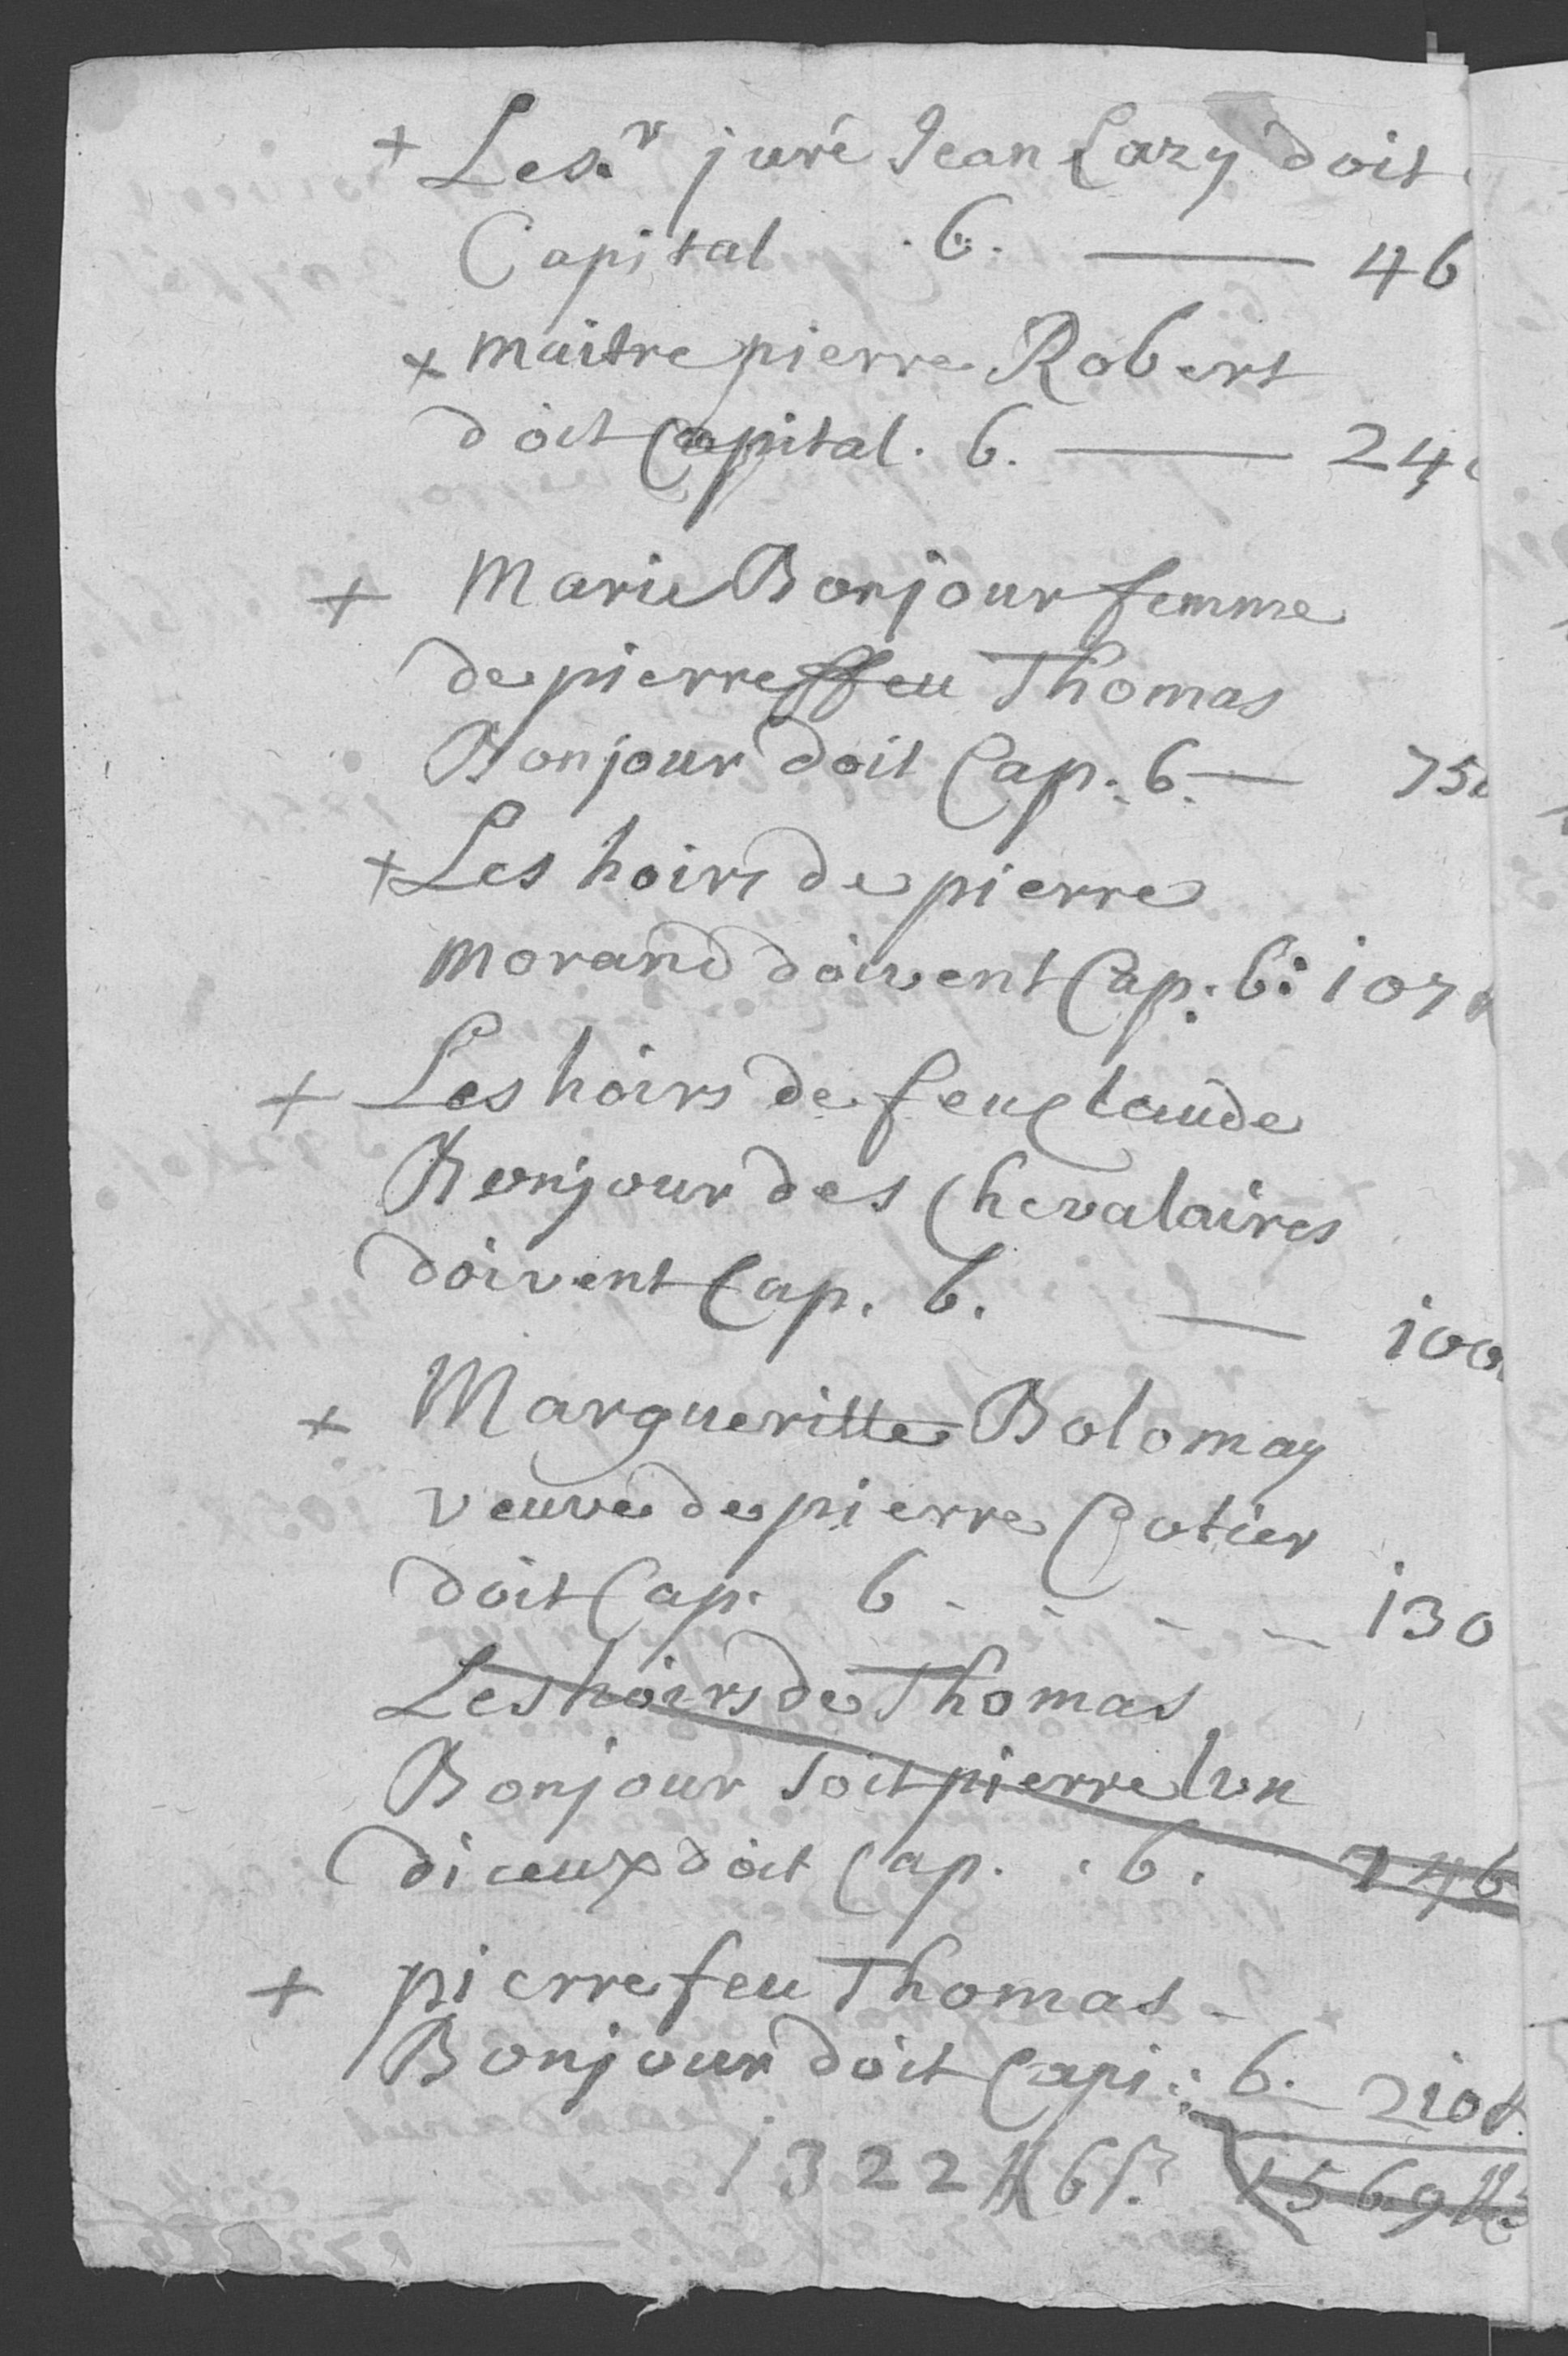 + Les.r juré Jean Cazy doit
Capital . 6. — 46
+ maitre pierre Robert
doit Capital . 6. — 24
+ Marie Bonjour femme
de pierre ffeu Thomas
Bonjour doit Cap. 6. — 75
+ Les hoirs de pierre
morand doivent Cap. 6: 107
+ Les hoirs de feu Claude
Bonjour des Chevalaires
doivent Cap. 6. — 100
+ Margueritte Bolomay
veuve de pierre Cotier
doit Cap. 6 - - - - 130
Les hoirs de Thomas
Bonjour soit pierre lun
diceux doit Cap. . 6. 246
+ pierre feu Thomas -
Bonjour doit Capi : 6. 210 ₶
1322 ₶ 6 s. 1569 ₶